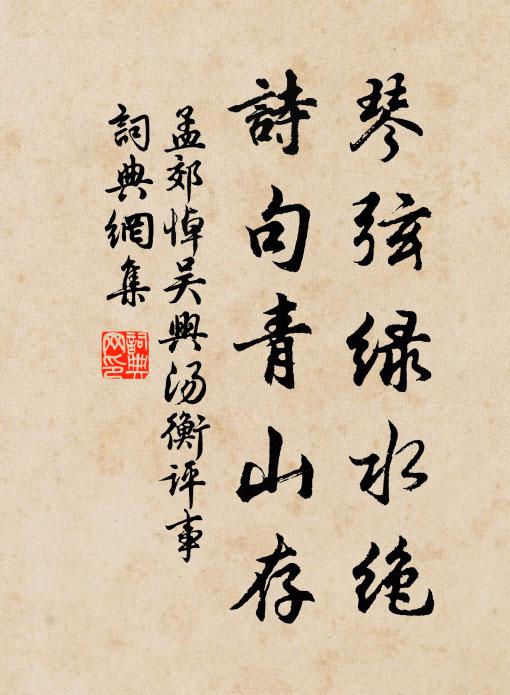 琴弦绿水绝
詩句青山存
孟郊悼吴興汤衡评事
詞典網集
詞典网印